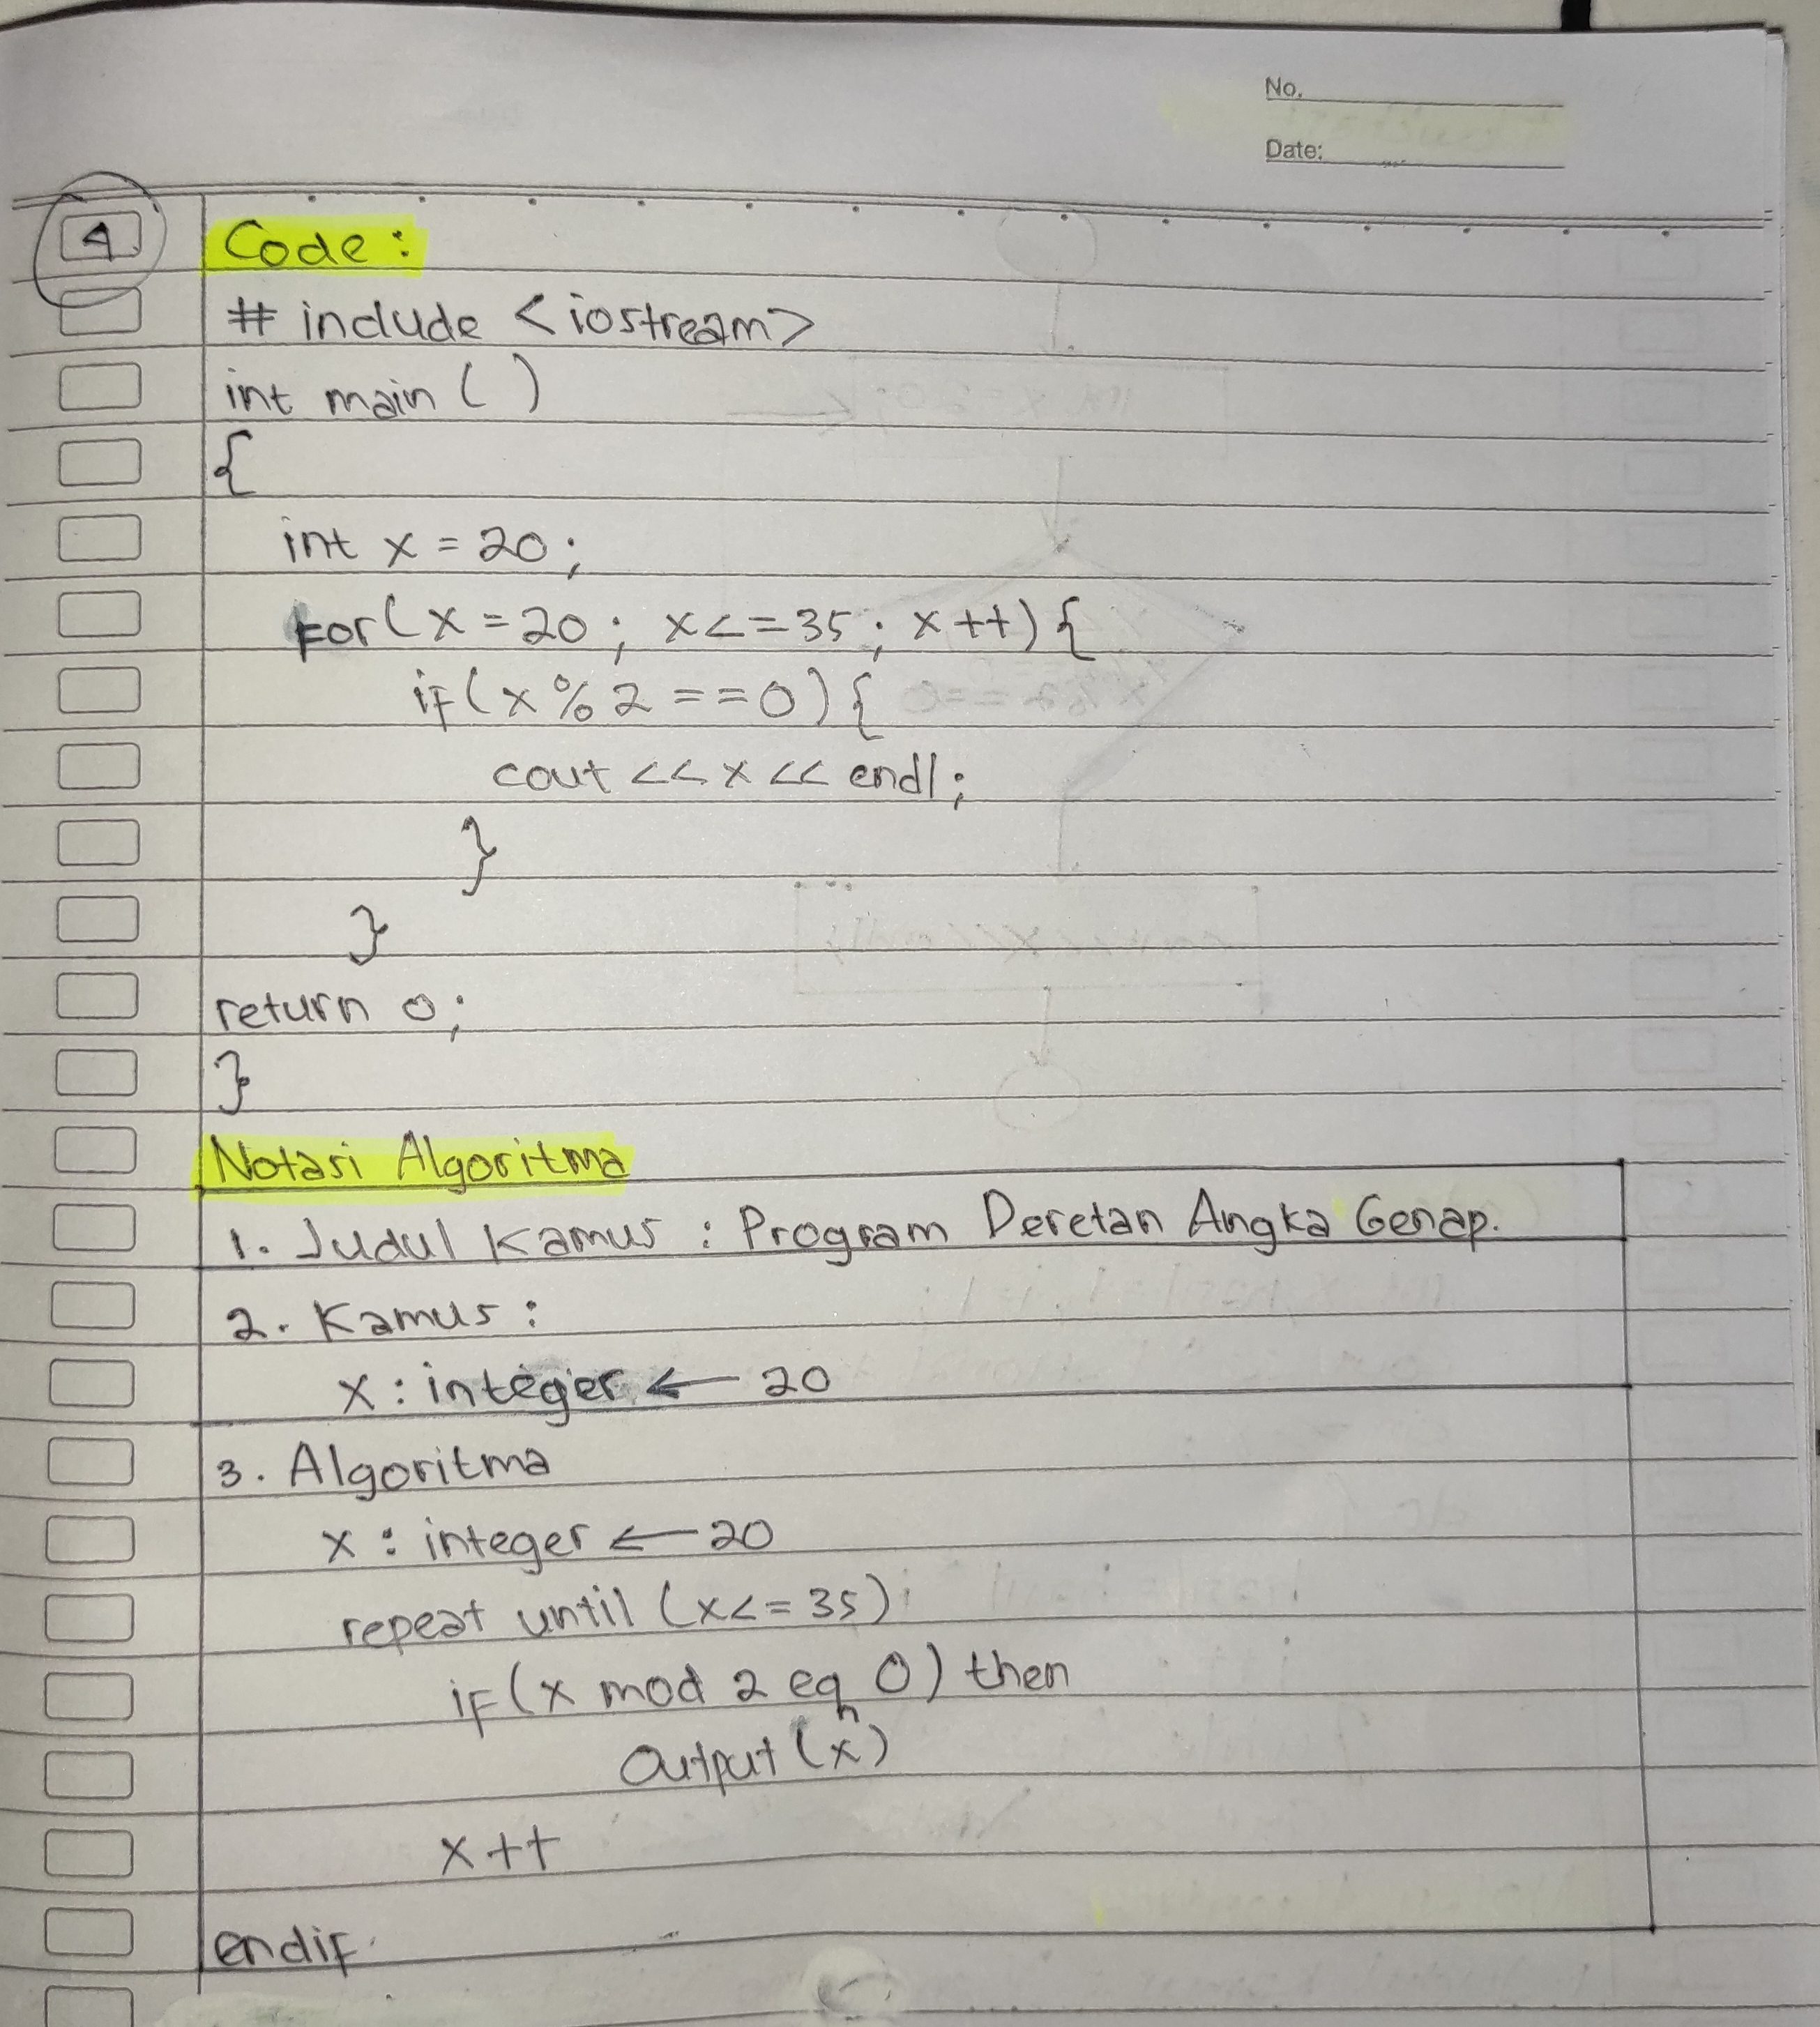 No.
Date:
4
Code :
# include <iostream>
int main ( )
{
int x = 20 ;
For( x = 20 ; x <= 35 ; x ++) {
if ( x % 2 == 0 ) {
cout << x << endl ;
}
}
return 0 ;
}
Notasi Algoritma
1. Judul Kamus : Program Deretan Angka Genap.
2. Kamus :
x : integer ← 20
3. Algoritma
x : integer ← 20
repeat until (x <= 35)
if (x mod 2 eq 0) then
Output (x)
x ++
endif